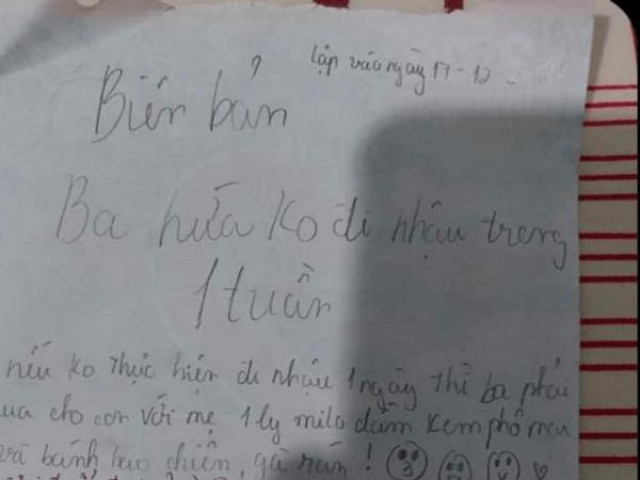 lập vào ngày 17-12
Biên bản
Ba hứa ko đi nhậu trong
1 tuần
nếu ko thực hiện đi nhậu 1 ngày thì ba phải
mua cho con với mẹ 1 ly milo dầm kem phô mai
và bánh bao chiên, gà rán!